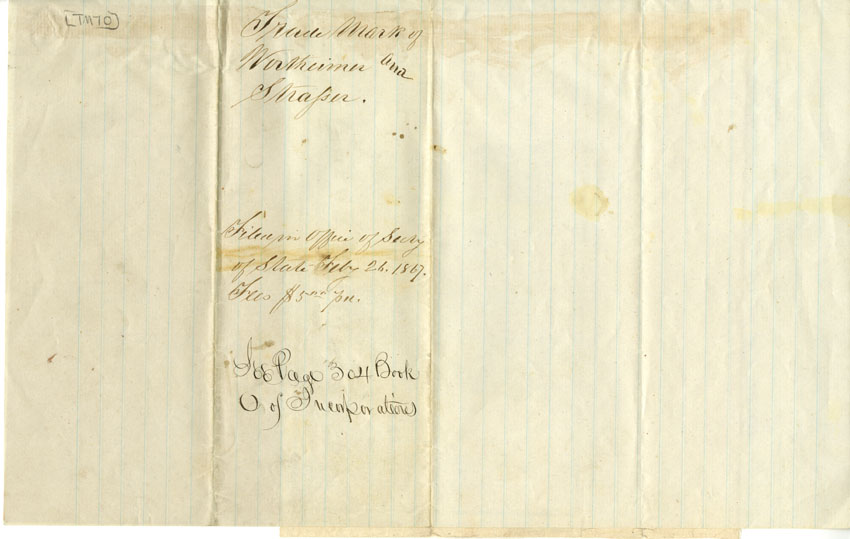 TM70
Trade Mark of
Wertheimer and
Strasser.
Filed in Office of Secy
of State Feby 26. 1867.
Fees $5 00 pd.
See Page 304 Book
O of Incorporations